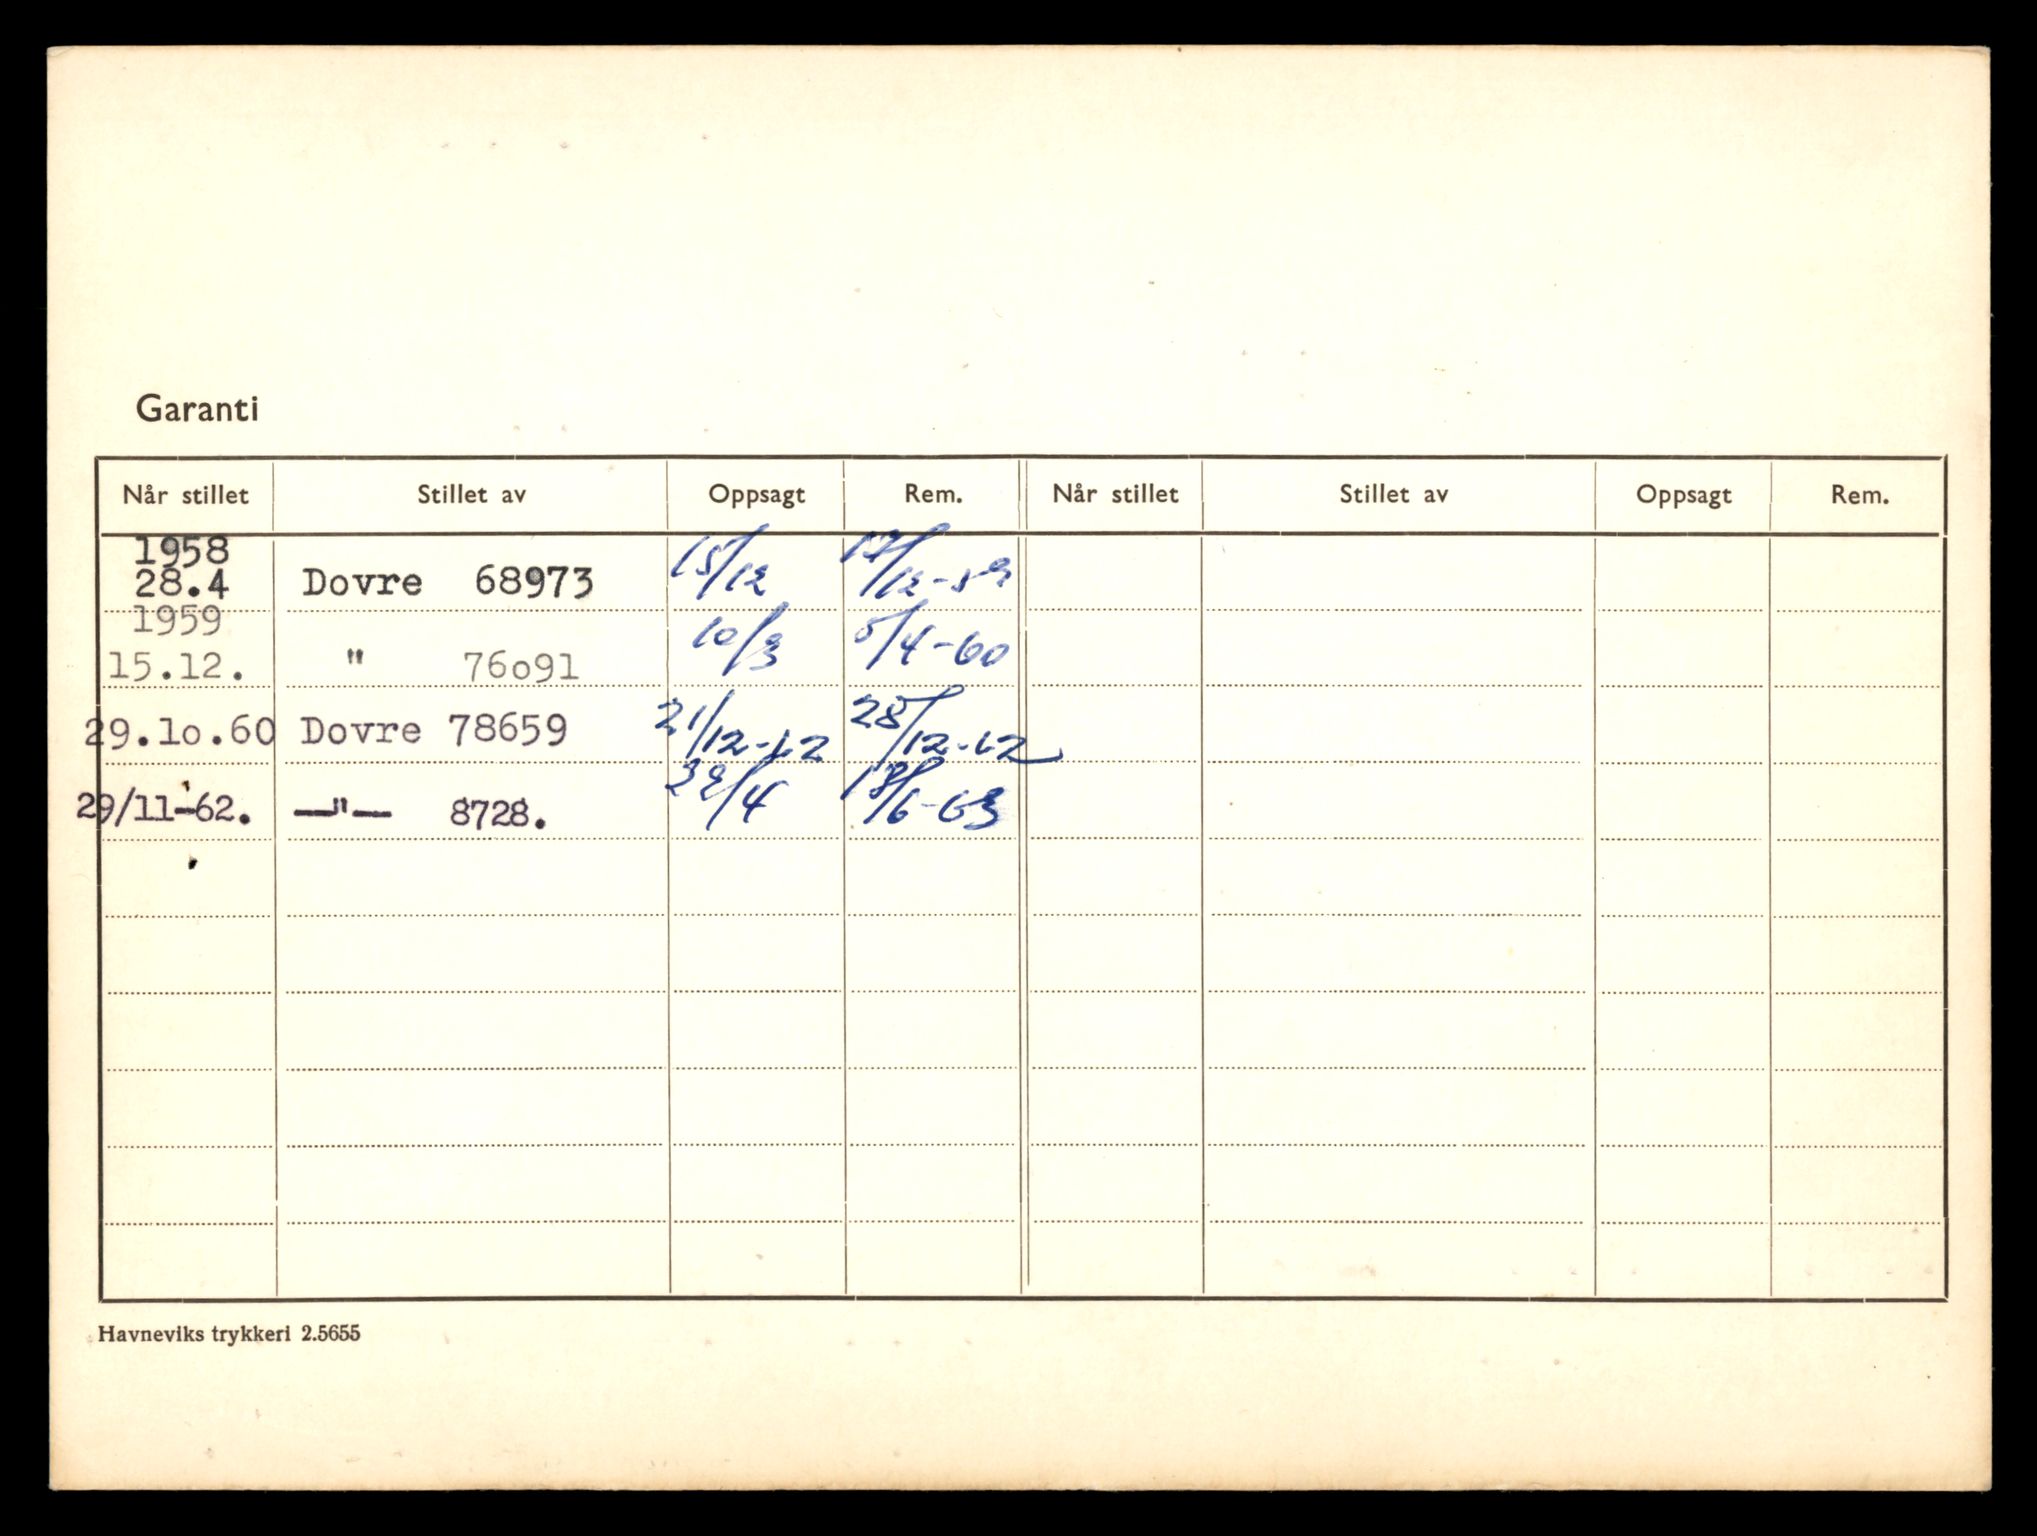 Garanti
Når stillet Stillet av Oppsagt Rem. Når stillet Stillet av Oppsagt Rem.
1958
28.4 Dovre 68973 15/12 17/12-59
1959
15.12. " 76o91 10/3 5/4-60
29.1o.60 Dovre 78659 21/12-62 28/12-62
29/11-62. —"— 8728. /4 18/6-63
Havneviks trykkeri 2.5655